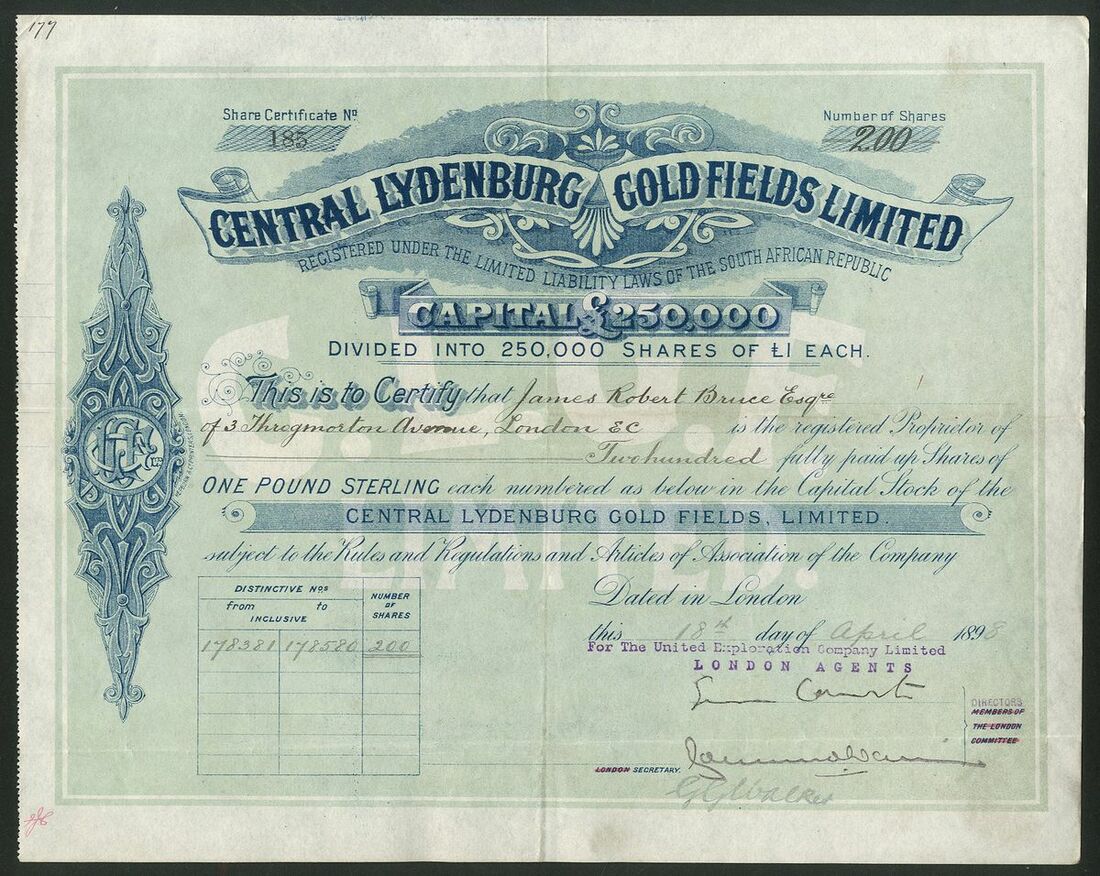 177
Share Certificate No
185
Number of Shares
200
CENTRAL LYDENBURG GOLD FIELDS LIMITED
REGISTERED UNDER THE LIMITED LIABILITY LAWS OF THE SOUTH AFRICAN REPUBLIC
CAPITAL £250,000
DIVIDED INTO 250,000 SHARES OF £1 EACH.
This is to Certify that James Robert Bruce Esqre
of 3 Throgmorton Avenue, London EC is the registered Proprietor of
Two hundred fully paid up Shares of
ONE POUND STERLING each numbered as below in the Capital Stock of the
CENTRAL LYDENBURG GOLD FIELDS, LIMITED.
subject to the Rules and Regulations and Articles of Association of the Company
Dated in London
this 18th day of April 1898
For The United Exploration Company Limited
LONDON AGENTS
DISTINCTIVE Nos
NUMBER OF SHARES
from to
INCLUSIVE
178381 178580 200
DIRECTORS
MEMBERS OF
THE LONDON
COMMITTEE
LONDON SECRETARY.
G G Walker
LIMITED.